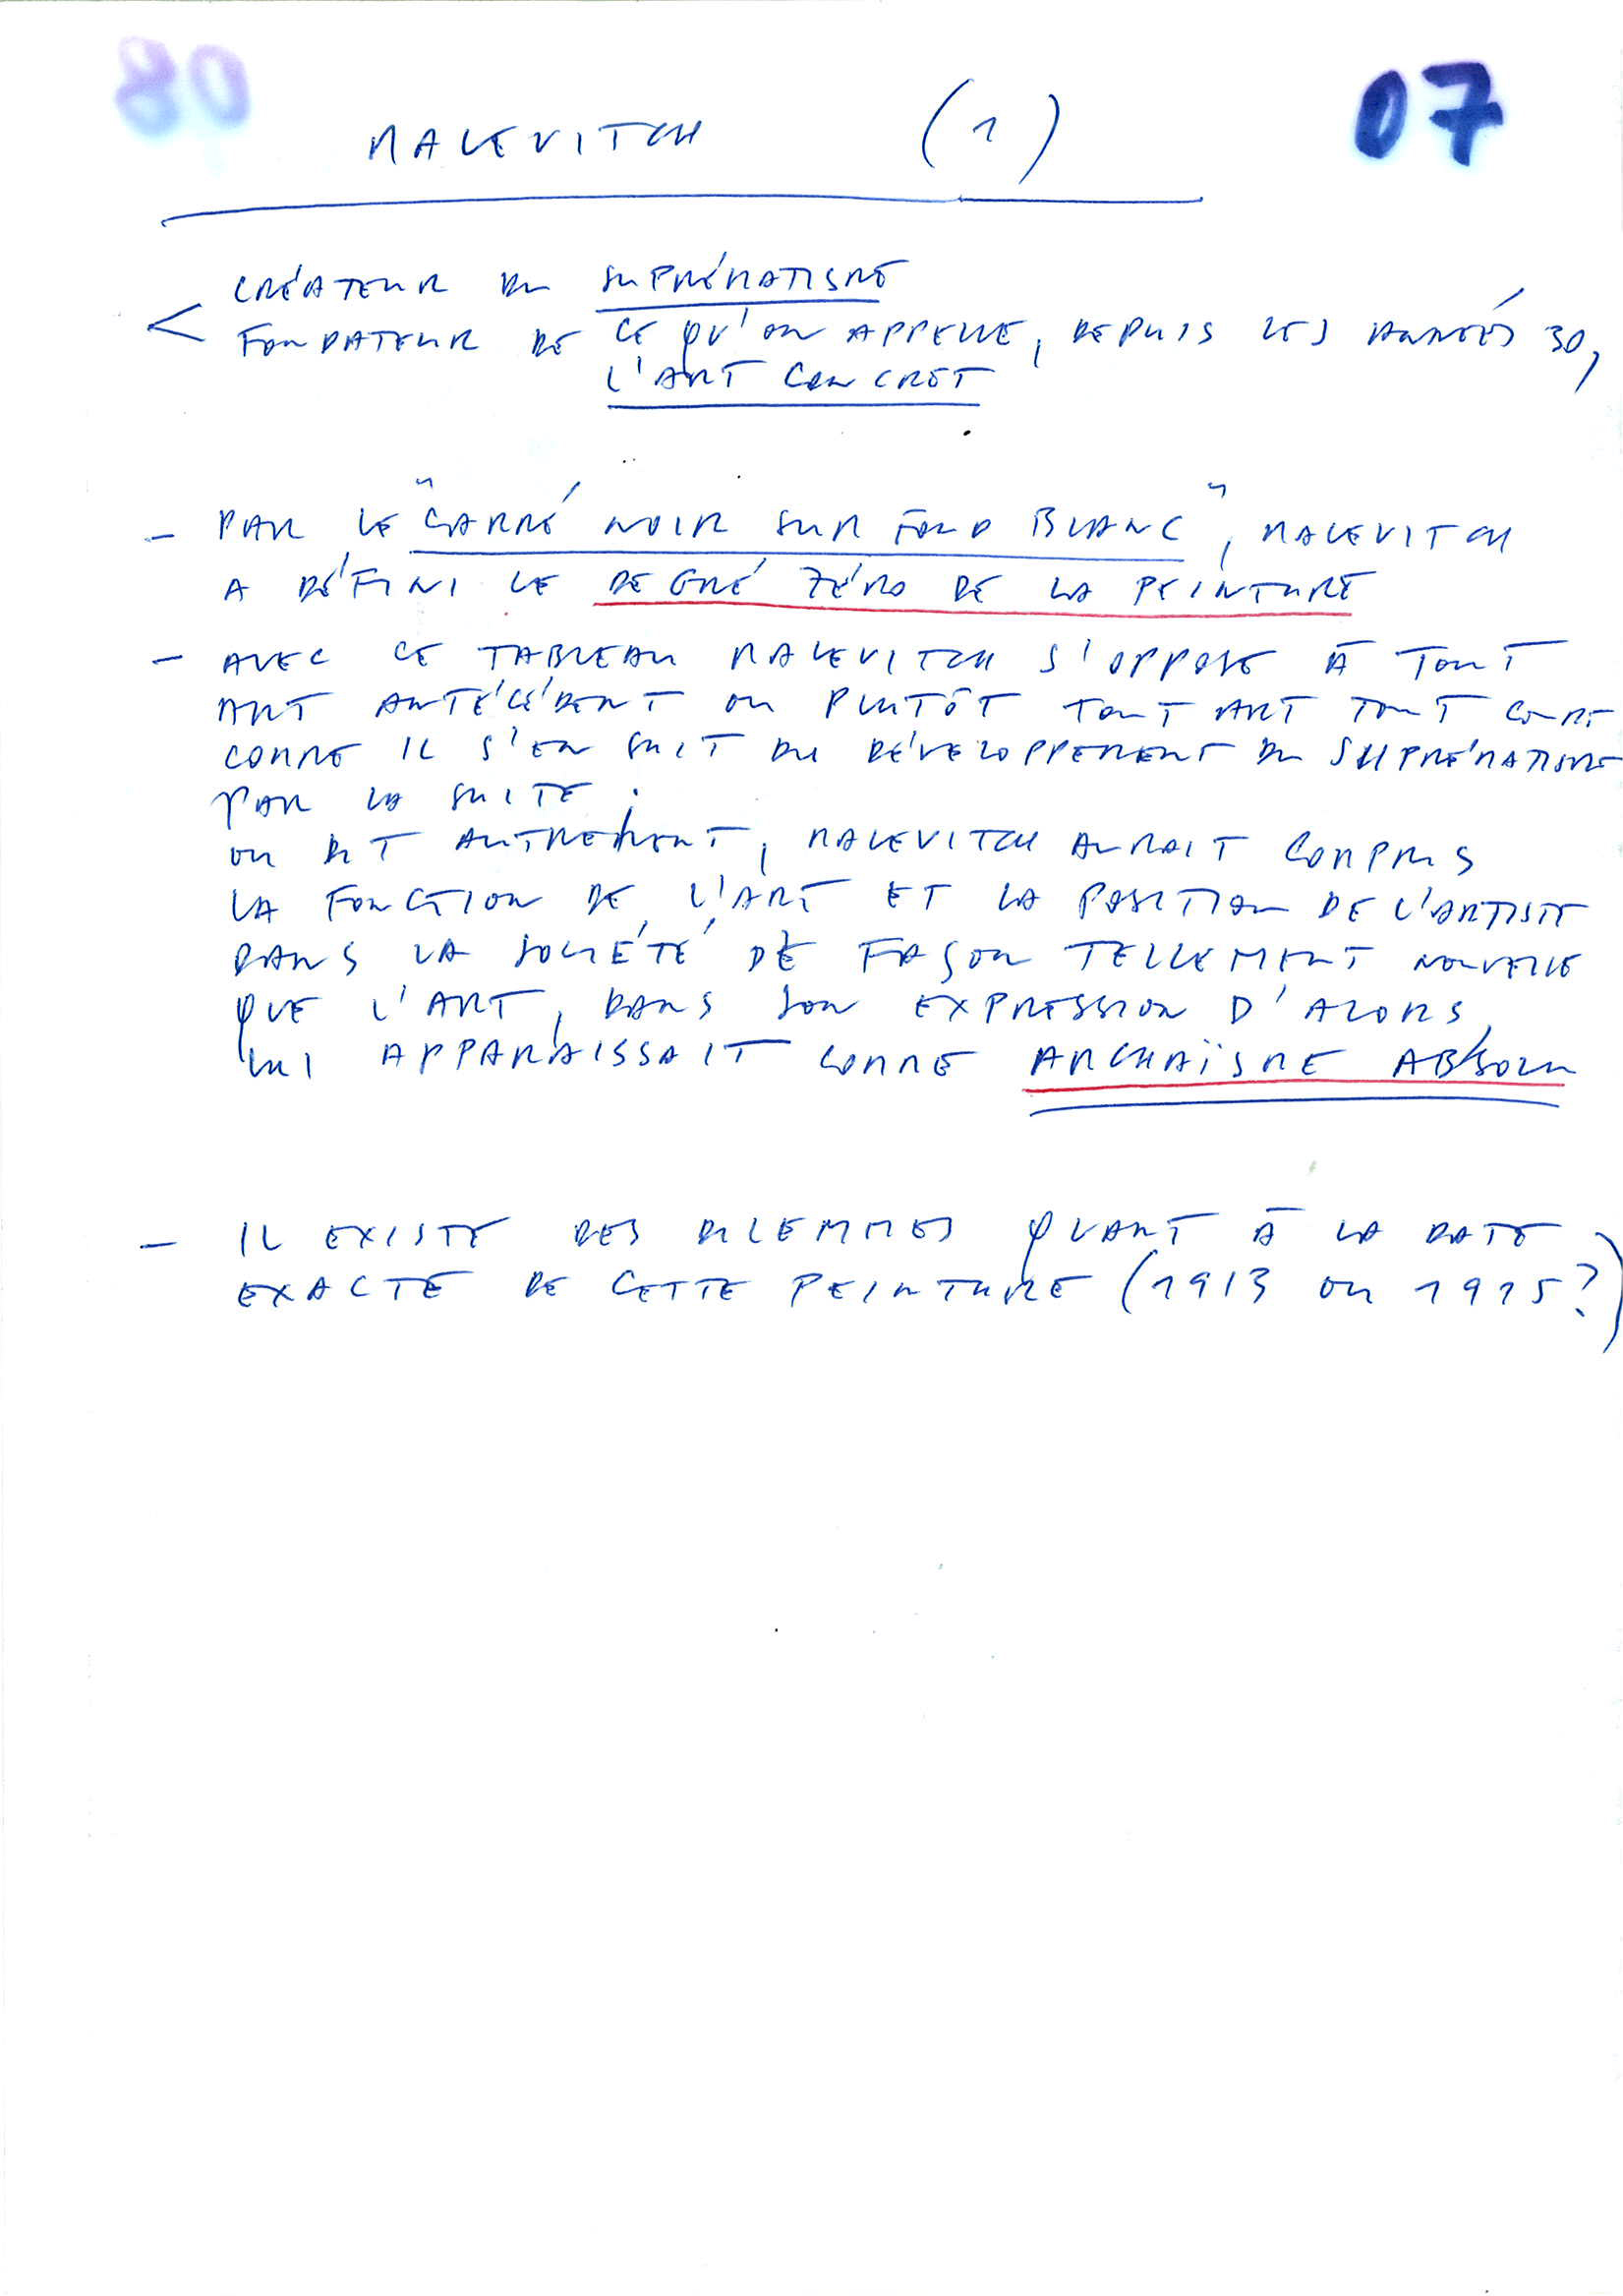 07
MALEVITCH (1)
CRÉATEUR DU SUPRÉMATISME
< FONDATEUR DE CE QU'ON APPELLE, DEPUIS LES ANNÉES 30,
L'ART CONCRET
- PAR LE "CARRÉ NOIR SUR FOND BLANC", MALEVITCH
A DÉFINI LE DEGRÉ ZÉRO DE LA PEINTURE
- AVEC CE TABLEAU MALEVITCH S'OPPOSE À TOUT
ART ANTÉCÉDENT OU PLUTÔT TOUT ART TOUT COURT
COMME IL S'EN SUIT DU DÉVELOPPEMENT DU SUPRÉMATISME
PAR LA SUITE.
OU DIT AUTREMENT, MALEVITCH AURAIT COMPRIS
LA FONCTION DE L'ART ET LA POSITION DE L'ARTISTE
DANS LA SOCIÉTÉ DE FAÇON TELLEMENT NOUVELLE
QUE L'ART, DANS SON EXPRESSION D'ALORS,
LUI APPARAISSAIT COMME ARCHAÏSME ABSOLU
- IL EXISTE DES DILEMMES QUANT À LA DATE
EXACTE DE CETTE PEINTURE (1913 OU 1915?)